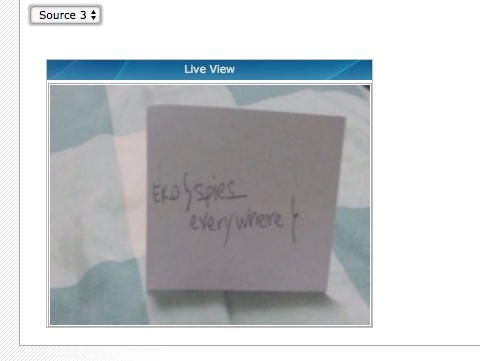 Source 3
Live View
EKO{spies_
everywhere}